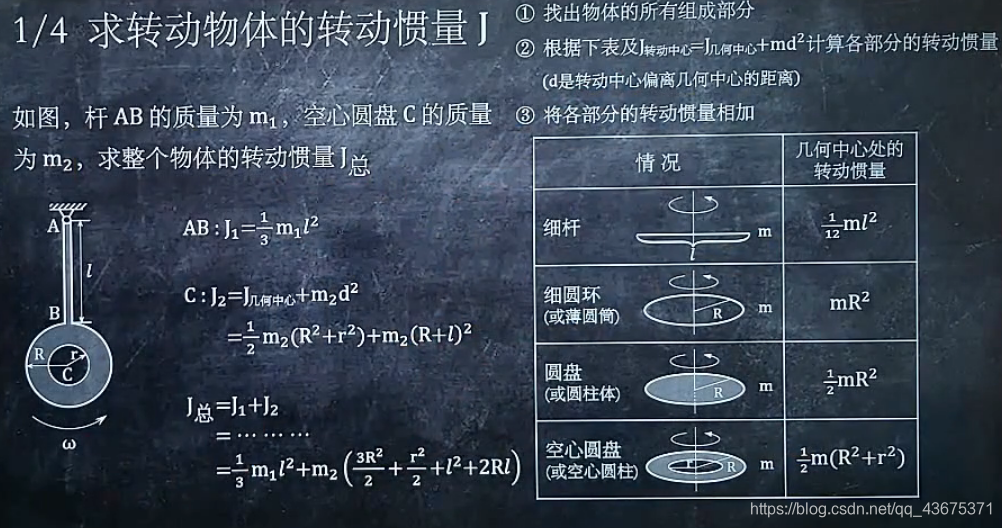 1/4 求转动物体的转动惯量 J
如图，杆 AB 的质量为 m₁，空心圆盘 C 的质量
为 m₂，求整个物体的转动惯量 J总
A
l
B
R
r
C
ω
AB : J₁=1/3 m₁l²
C : J₂=J几何中心+m₂d²
=1/2 m₂(R²+r²)+m₂(R+l)²
J总=J₁+J₂
=⋯ ⋯ ⋯
=1/3 m₁l²+m₂(3R²/2+r²/2+l²+2Rl)
① 找出物体的所有组成部分
② 根据下表及J转动中心=J几何中心+md²计算各部分的转动惯量
(d是转动中心偏离几何中心的距离)
③ 将各部分的转动惯量相加
情况
几何中心处的
转动惯量
细杆
l
m
1/12 ml²
细圆环
(或薄圆筒)
R
m
mR²
圆盘
(或圆柱体)
R
m
1/2 mR²
空心圆盘
(或空心圆柱)
r
R
m
1/2 m(R²+r²)
https://blog.csdn.net/qq_43675371